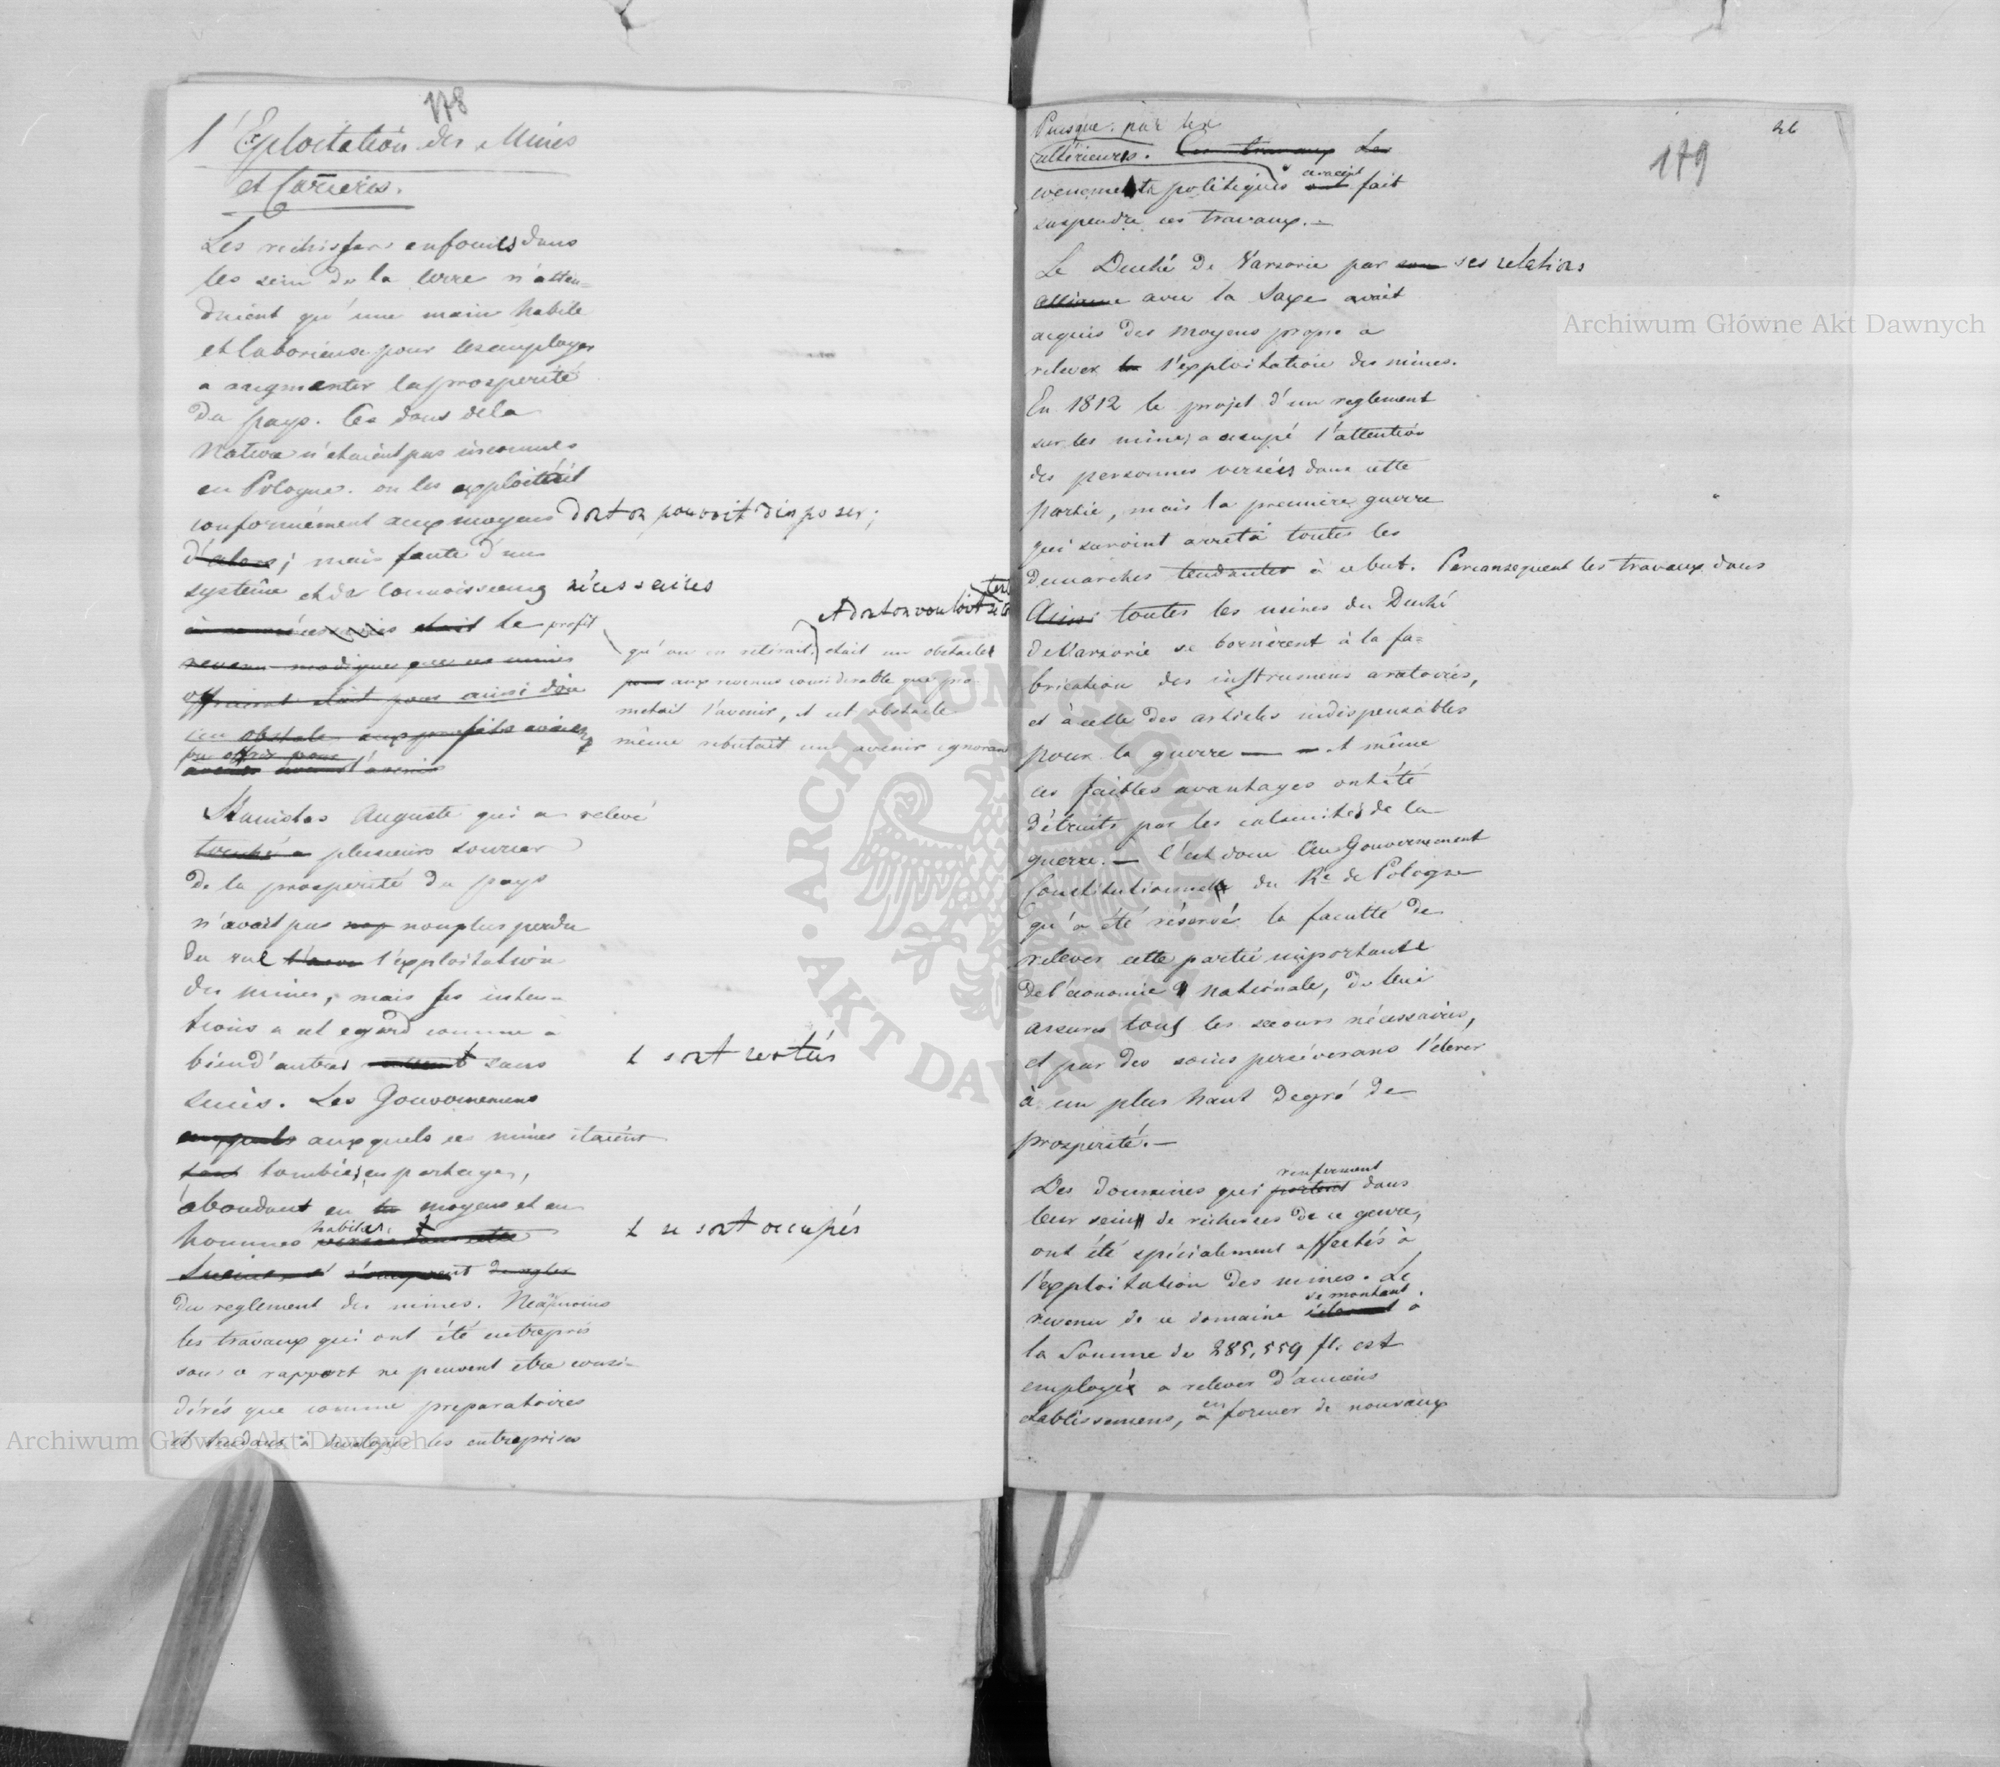 178
l'Exploitation des Mines
et Carrieres.
Les richesses enfouies dans
les sein de la terre n'atten=
daient qu'une main habile
et laborieuse pour les employer
a augmenter la prosperité
du pays. Ces dons dela
Nature n'etaient pas inconnues
en Pologne. on les exploitait
conformément aux moyens dont on pouvoit disposer;
d'alors; mais faute d'un
systême et de connoissances nécessaires
était le profit
revenu modique que ces mines
offraient était pour ainsi dire
un obstacle aux profits
pu offrir pour
l'avenir
A dont on vouloit
qu'on en retirait, etait un obstacle
pour aux revenus considerable que pro-
mettait l'avenir, et cet obstacle
même rebutait un avenir ignorant
Stanislas Auguste qui a relevé
touché a plusieurs sources
de la prosperité du pays
n'avait pas non plus perdu
du vue l'exploitation
des mines, mais ses inten=
tions a cet egard comme a
bien d'autres sans
t sont restés
succès. Les Gouvernemens
auxquels auxquels ces mines étaient
sont tombées en partages,
abondant en moyens et en
hommes habiles. t
t se sont occupés
s'occupent de regler
du reglement des mines. Néanmoins
les travaux qui ont été entrepris
sous ce rapport ne peuvent etre consi-
dérés que comme preparatoires
et tendans à developper les entreprises
26
179
Puisque par les
ultérieures. Ces travaux Les
evenements politiques avaient fait
suspendre ces travaux.—
Le Duché de Varsovie par son ses relations
alliance avec la Saxe avait
acquis des moyens propre a
relever la l'exploitation des mines.
En 1812 le projet d'un reglement
sur les mines a occupé l'attention
des personnes versées dans cette
partie, mais la première guerre
qui survint arreta toutes les
demarches tendantes à ce but. Par consequent les travaux dans
Ainsi toutes les mines du Duché
de Varsovie se bornèrent à la fa=
brication des instrumens aratoires,
et à celle des articles indispensables
pour la guerre — – et même
ces faibles avantages ont été
détruits par les calamités de la
guerre.— C'est donc Au Gouvernement
Constitutionnel du Re de Pologne
qu'a été réservé la faculté de
relever cette partie importante
de l'économie nationale, de lui
assurer tous les secours nécessaires,
et par des soins perséverans l'élever
à un plus haut degré de
prosperité.—
renferment
Des domaines qui portent dans
leur sein de richesses de ce genre,
ont été spécialement affectés à
l'exploitation des mines. Le
se montant
revenu de ce domaine a
la Somme de 285,559 fl. est
employé a relever d'anciens
etablissemens, a en former de nouveaux
Archiwum Główne Akt Dawnych
Archiwum Główne Akt Dawnych
ARCHIWUM GŁÓWNE AKT DAWNYCH